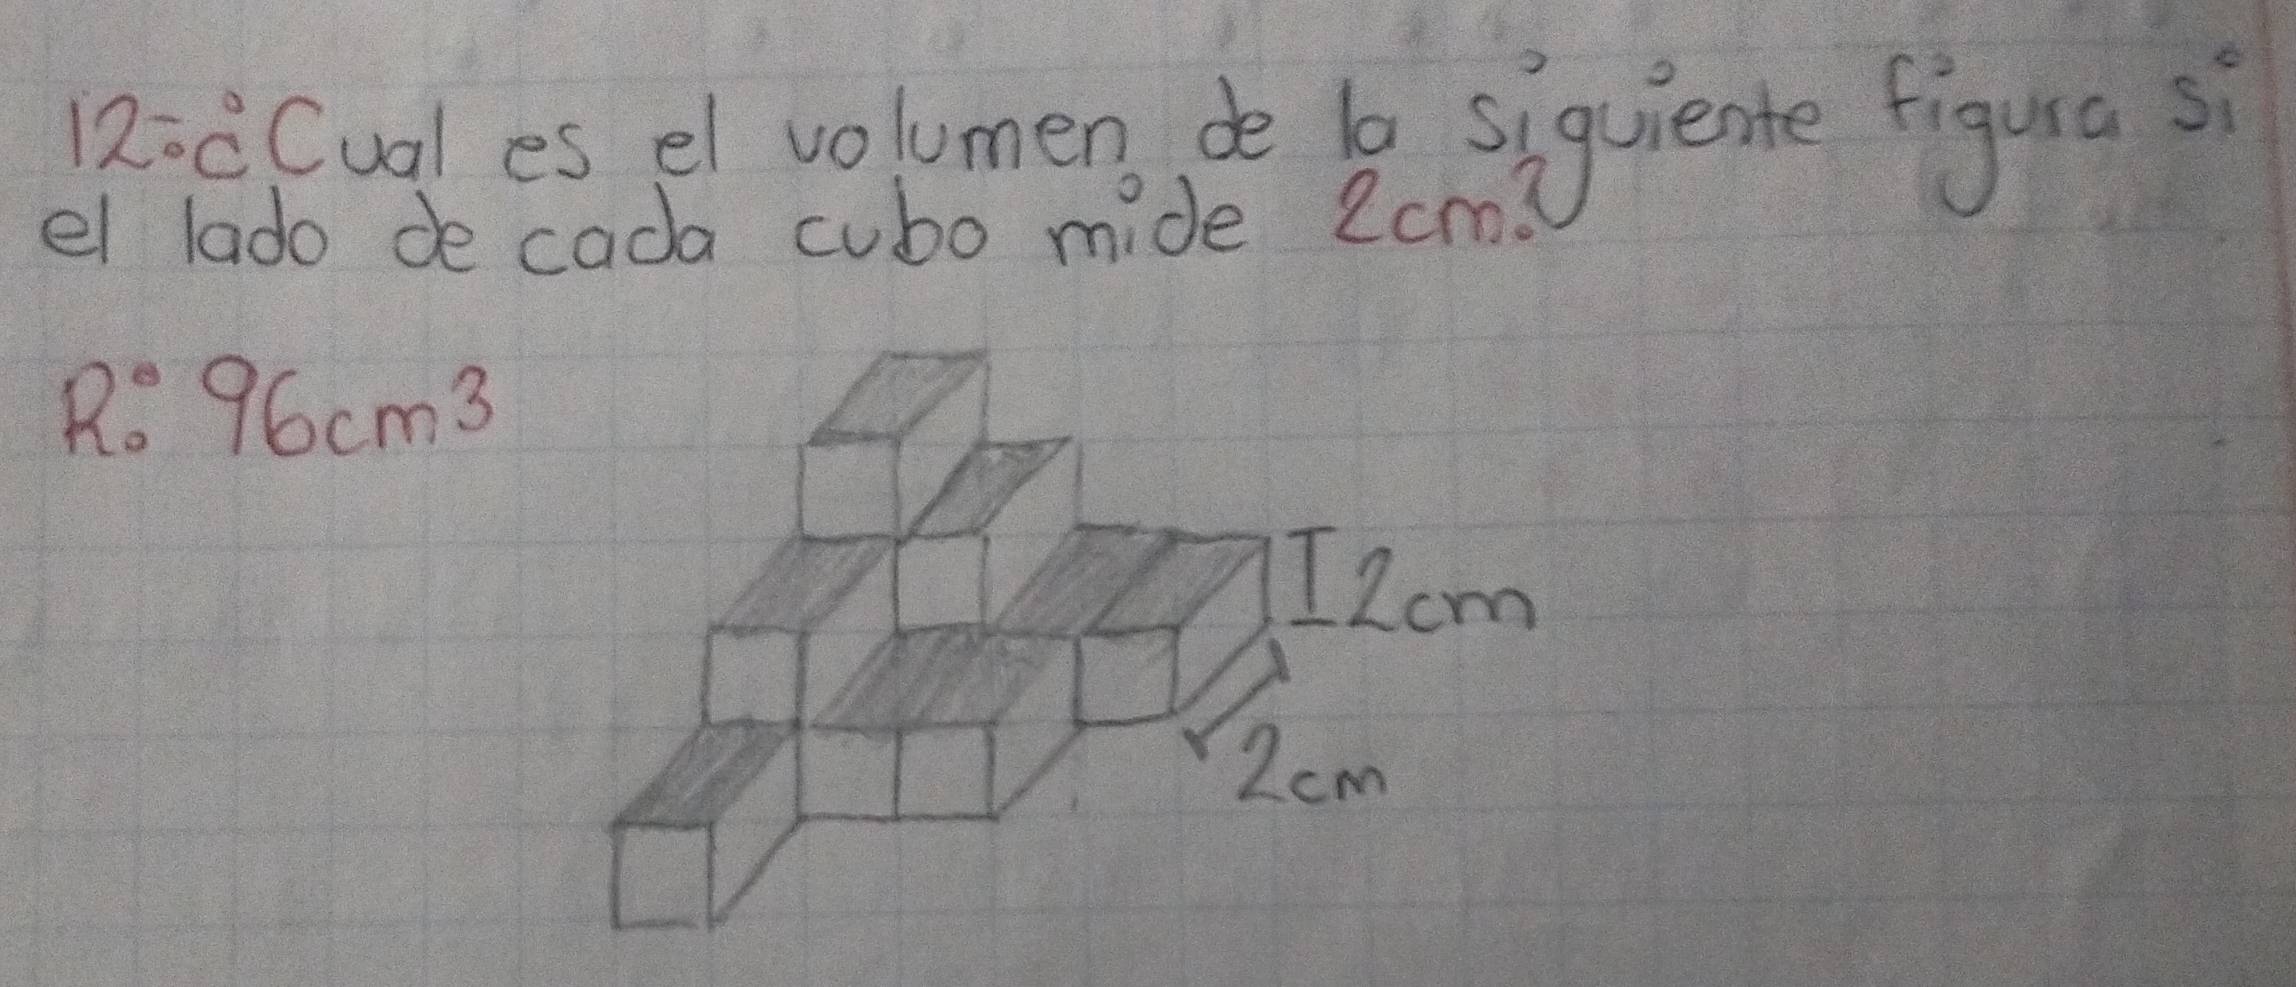 12:¿Cual es el volumen de la siguiente figura si
el lado de cada cubo mide 2cm?
R: 96cm3
2cm
2cm